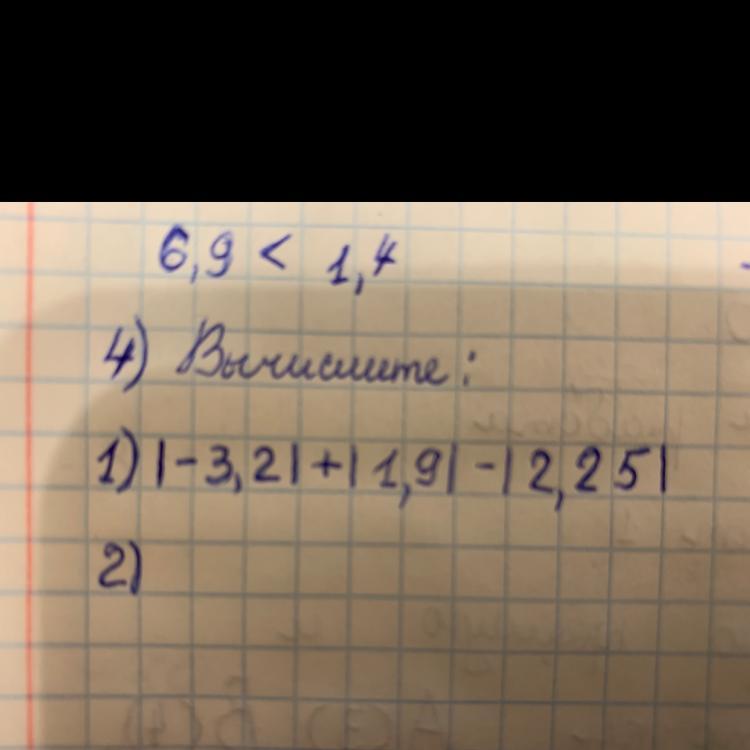 6,9 < 1,4
4) Вычислите:
1) |-3,2| + |1,9| - |2,25|
2)